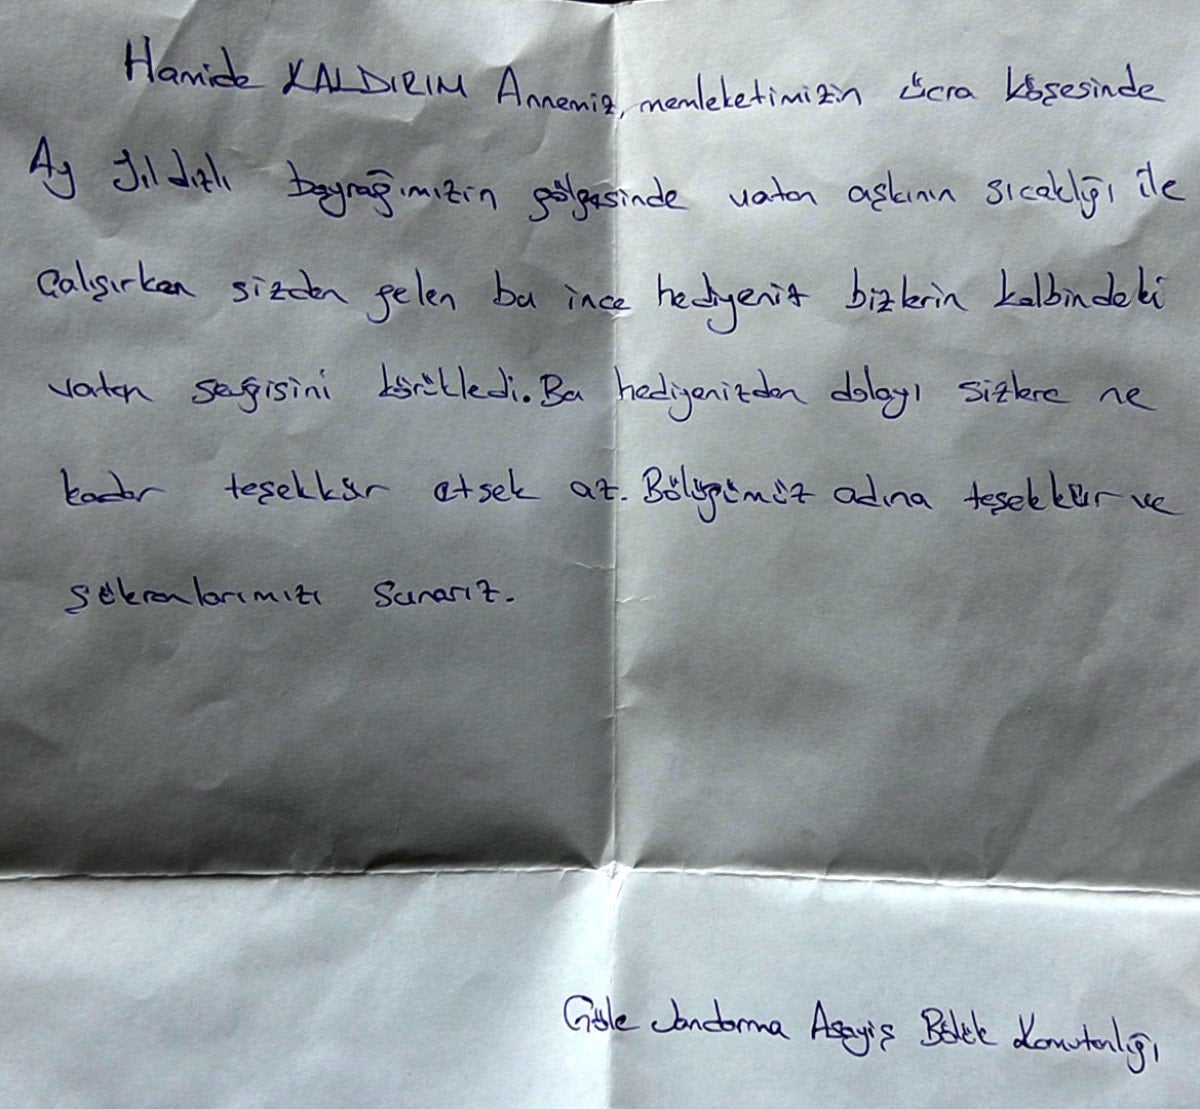 Hamide KALDIRIM Annemiz, memleketimizin ücra köşesinde
Ay Yıldızlı bayrağımızın gölgesinde vatan aşkının sıcaklığı ile
çalışırken sizden gelen bu ince hediyeniz bizlerin kalbindeki
vatan sevgisini körükledi. Bu hediyenizden dolayı sizlere ne
kadar teşekkür etsek az. Bölüğümüz adına teşekkür ve
şükranlarımızı sunarız.
Göle Jandarma Asayiş Bölük Komutanlığı